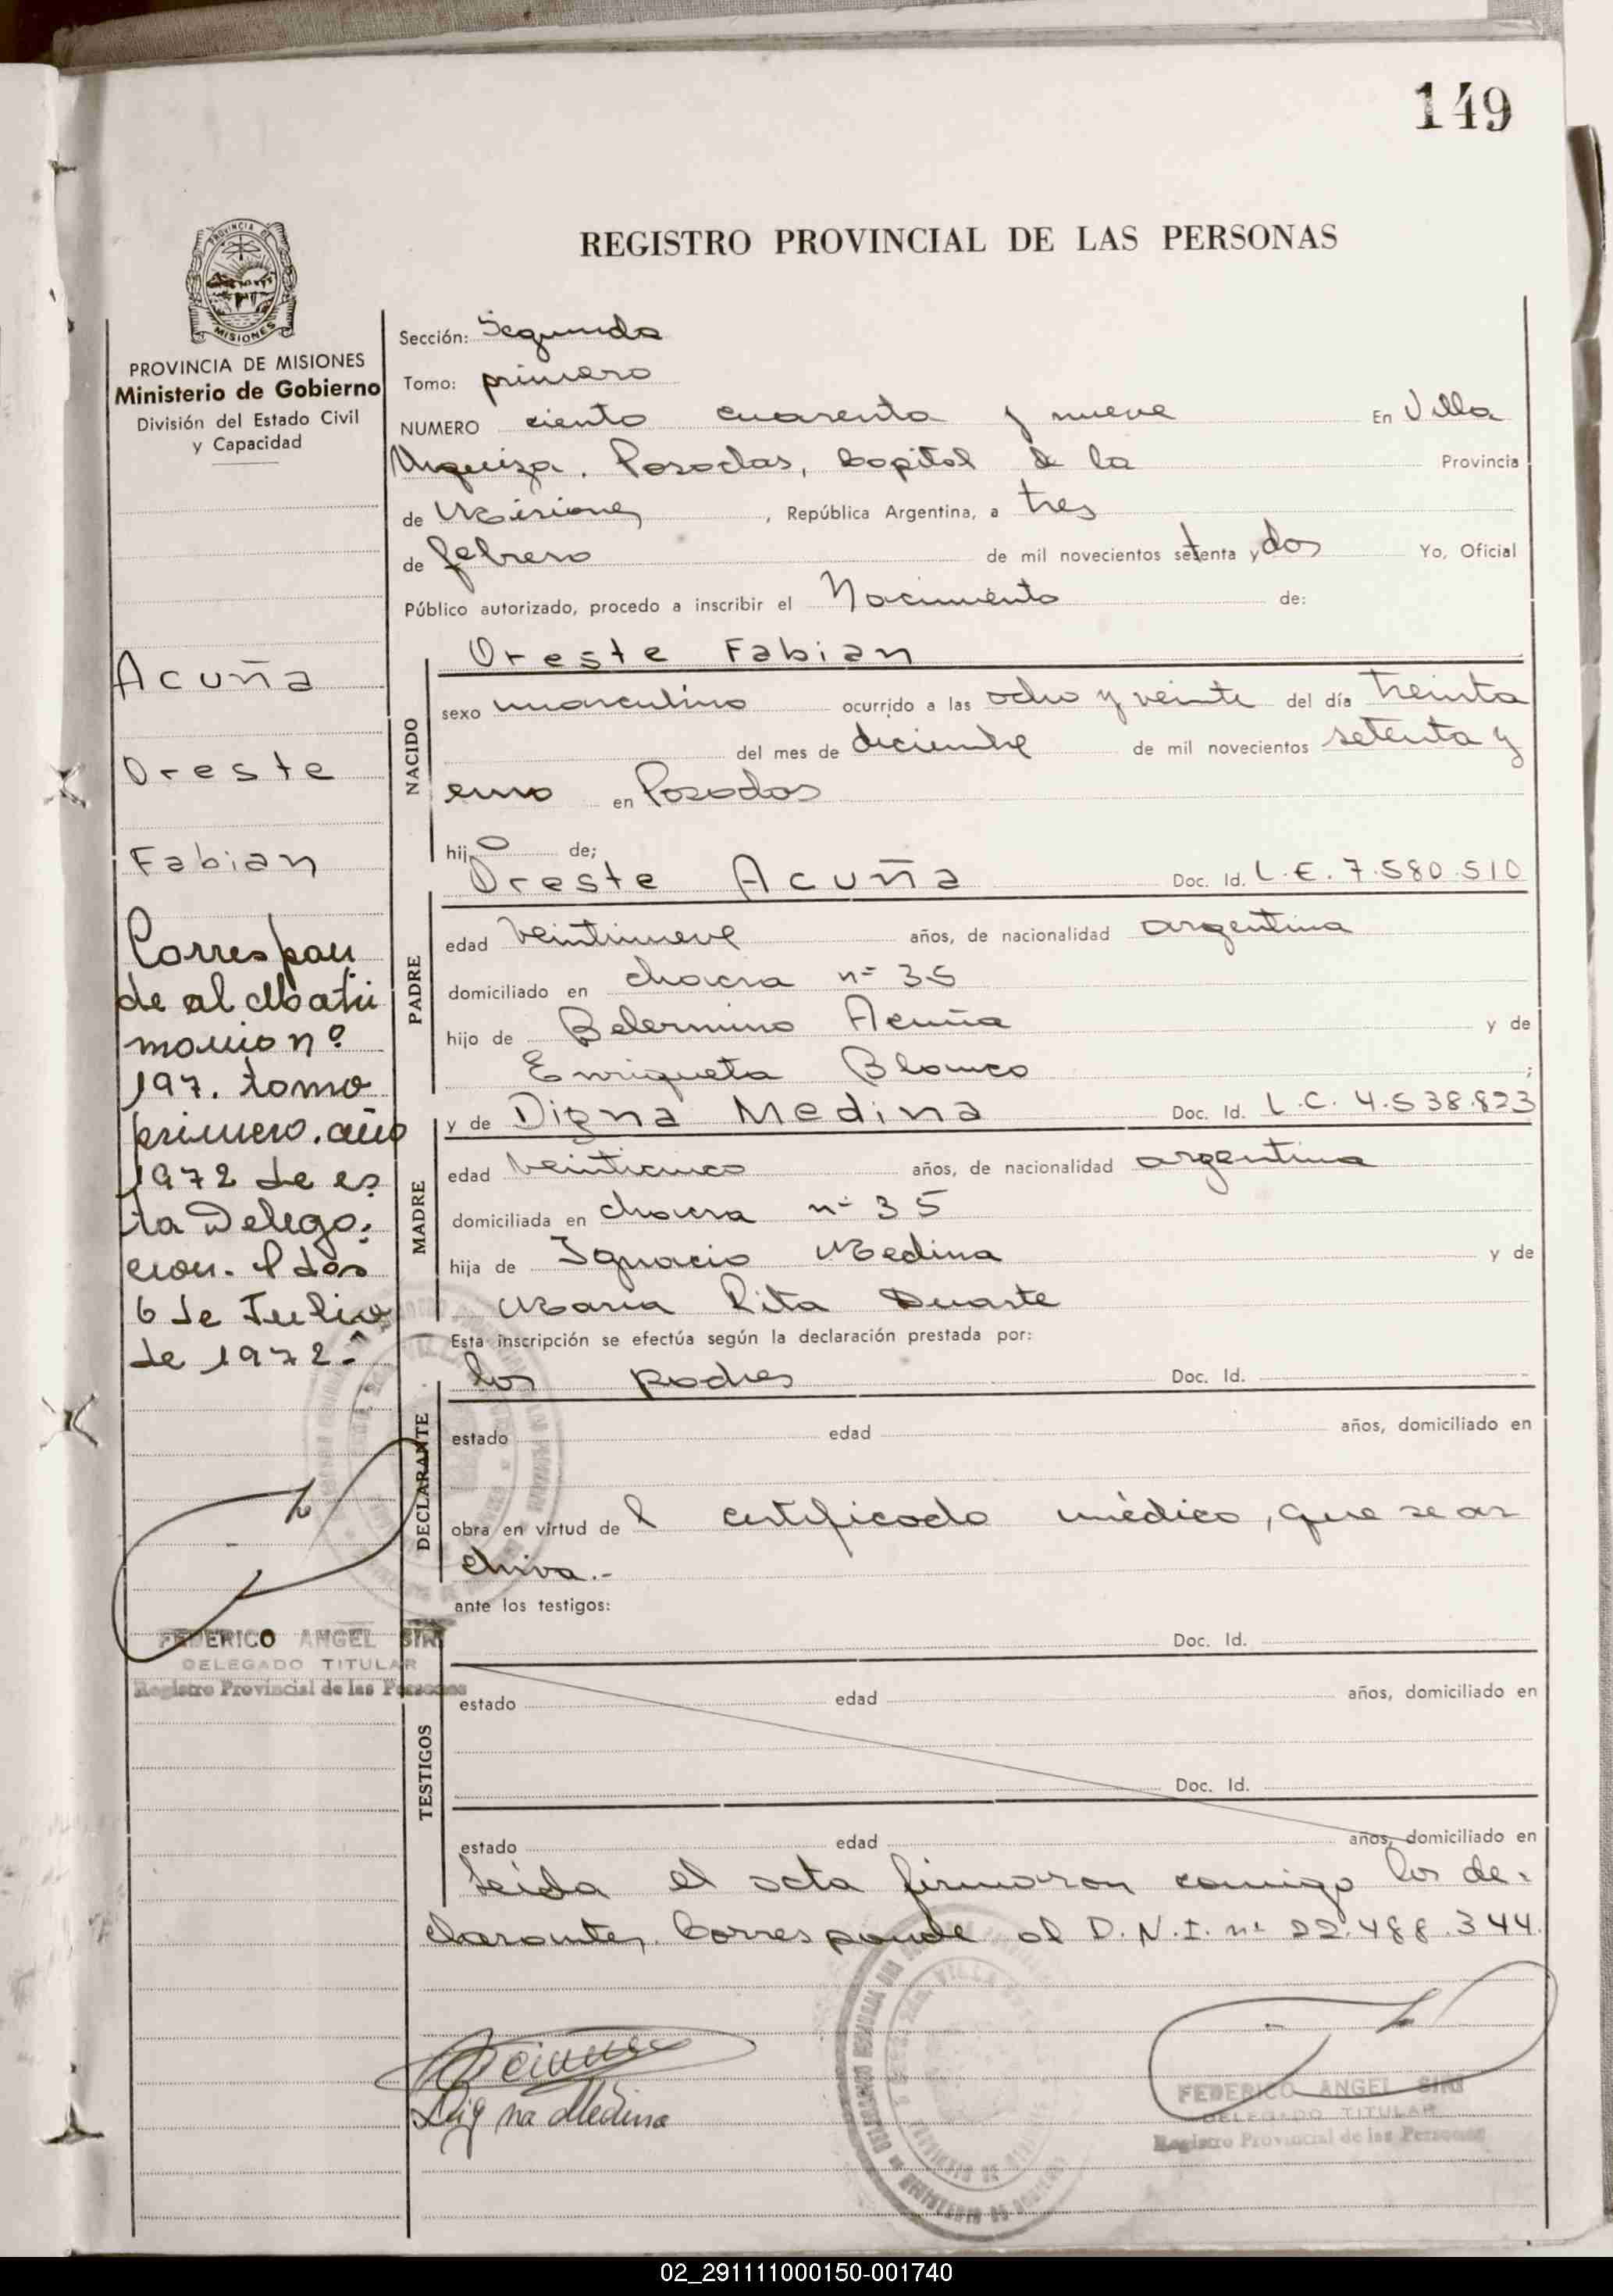 149
PROVINCIA DE
MISIONES
REGISTRO PROVINCIAL DE LAS PERSONAS
PROVINCIA DE MISIONES
Ministerio de Gobierno
División del Estado Civil
y Capacidad
Acuña
Oreste
Fabian
Correspon
de al Matri
monio nº
197. tomo
primero. año
1972 de es
ta Delega-
cion. Pdas
6 de Julio
de 1972.-
FEDERICO ANGEL SIRI
DELEGADO TITULAR
Registro Provincial de las Personas
Sección: Segunda
Tomo: primero
NUMERO ciento cuarenta y nueve En Villa
Urquiza. Posadas, Capital de la Provincia
de Misiones, República Argentina, a tres
de febrero de mil novecientos setenta y dos Yo, Oficial
Público autorizado, procedo a inscribir el Nacimiento de:
Oreste Fabian
NACIDO
sexo masculino ocurrido a las ocho y veinte del día treinta
del mes de diciembre de mil novecientos setenta y
uno en Posadas
hijo de;
Oreste Acuña Doc. Id. L.E. 7.580.510
PADRE
edad veintinueve años, de nacionalidad argentina
domiciliado en chacra nº 35
hijo de Belermino Acuña y de
Enriqueta Blanco ;
y de Digna Medina Doc. Id. L.C. 4.538.823
MADRE
edad veinticinco años, de nacionalidad argentina
domiciliada en chacra nº 35
hija de Ignacio Medina y de
Maria Rita Duarte
Esta inscripción se efectúa según la declaración prestada por:
los padres Doc. Id.
DECLARANTE
estado edad años, domiciliado en
obra en virtud del certificado médico, que se ar
chiva.-
ante los testigos:
Doc. Id.
TESTIGOS
estado edad años, domiciliado en
Doc. Id.
estado edad años, domiciliado en
Leida el acta firmaron conmigo los de-
clarantes. Corresponde al D.N.I. nº 22.488.344.
Digna Medina
FEDERICO ANGEL SIRI
DELEGADO TITULAR
Registro Provincial de las Personas
02_291111000150-001740